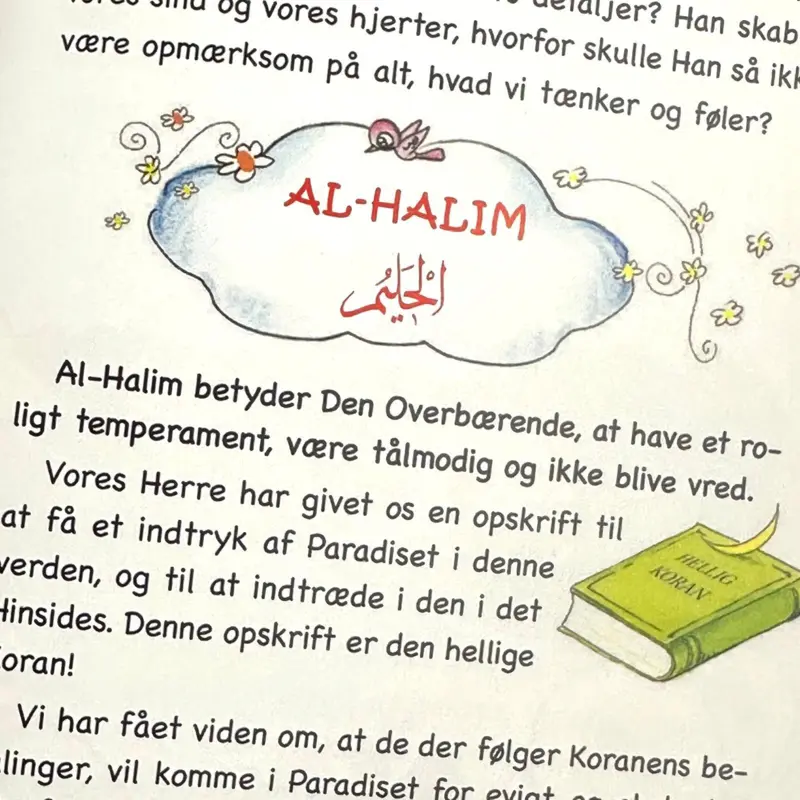 og vores hjerter, hvorfor skulle Han så ikk
være opmærksom på alt, hvad vi tænker og føler?
AL-HALIM
الْحَلِيمُ
Al-Halim betyder Den Overbærende, at have et ro-
ligt temperament, være tålmodig og ikke blive vred.
Vores Herre har givet os en opskrift til
at få et indtryk af Paradiset i denne
verden, og til at indtræde i den i det
Hinsides. Denne opskrift er den hellige
Koran!
HELLIG
KORAN
Vi har fået viden om, at de der følger Koranens be-
linger, vil komme i Paradiset for evigt